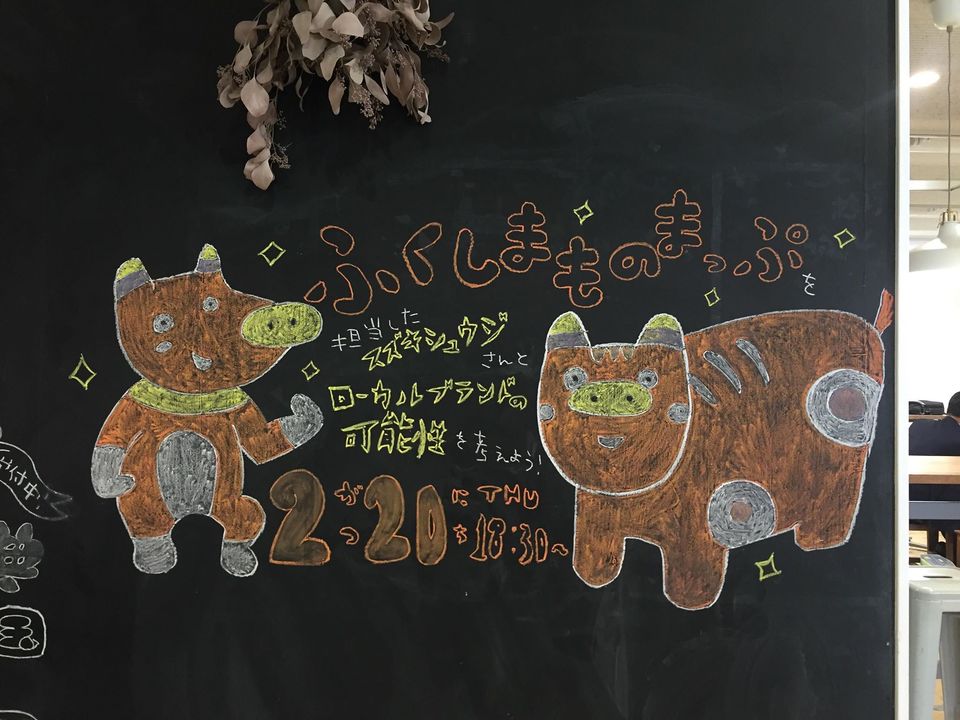 ふくしまものまっぷを
担当した
スズキシュウジさんと
ローカルブランドの
可能性を考えよう!
2がつ20にち THU
18:30~
付中!